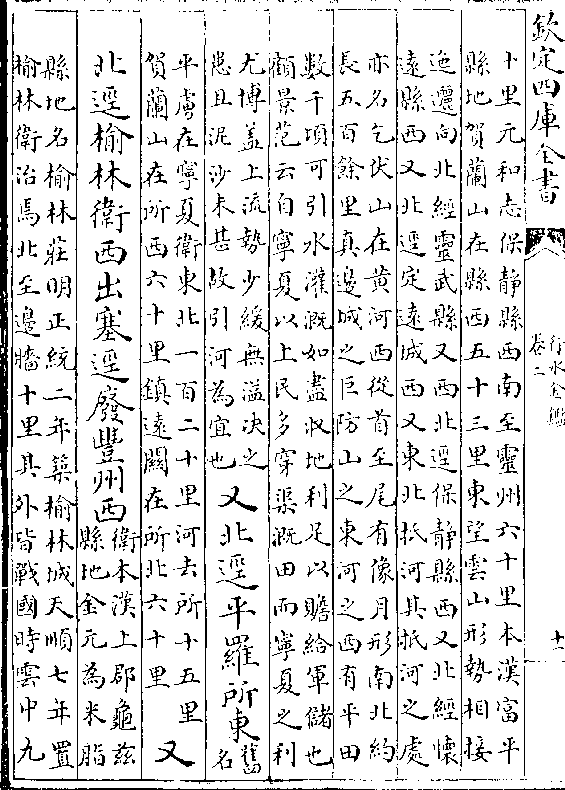 欽定四庫全書
行水金鑑
卷二
十一
十里元和志保靜縣西南至靈州六十里本漢富平
縣地賀蘭山在縣西五十三里東望雲山形勢相接
迤邐向北經靈武縣又西北逕保靜縣西又北經懷
遠縣西又北逕定遠城西又東北抵河其抵河之處
亦名乞伏山在黄河西從首至尾有像月形南北約
長五百餘里真邊城之巨防山之東河之西有平田
數千頃可引水灌溉如盡収地利足以贍給軍儲也
顧景范云自寧夏以上民多穿渠溉田而寧夏之利
尤博蓋上流勢少緩無溢決之
患且泥沙未甚故引河為宜也
又北逕平羅所東
舊名
平虜在寧夏衛東北一百二十里河去所十五里
賀蘭山在所西六十里鎮遠關在所北六十里
又
北逕榆林衛西出塞逕廢豐州西
衛本漢上郡龜兹
縣地金元為米脂
縣地名榆林莊明正統二年築榆林城天順七年置
榆林衛治焉北至邊牆十里其外皆戰國時雲中九